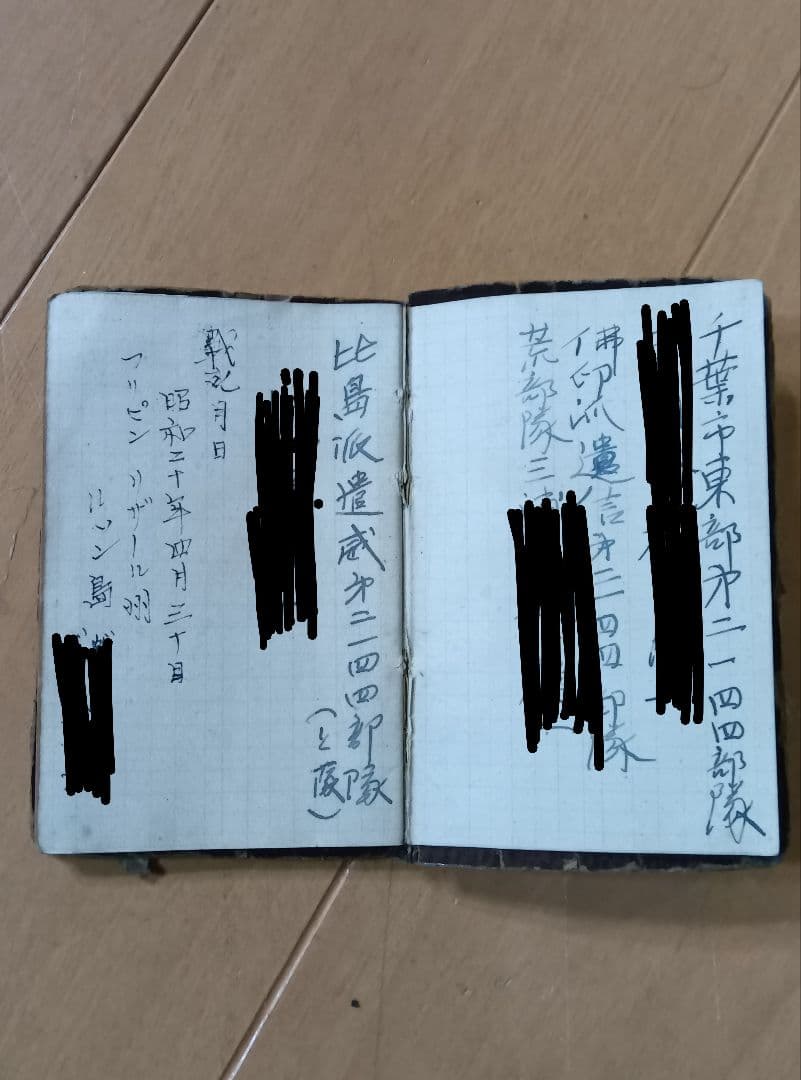 千葉市東部㐧二一四四部隊
佛印派遣信㐧二一四四部隊
荒部隊三浦
比島派遣威㐧二一四四部隊
(と蔭)
戦死月日
昭和二十年四月三十日
フリピン リザール州
ルソン島